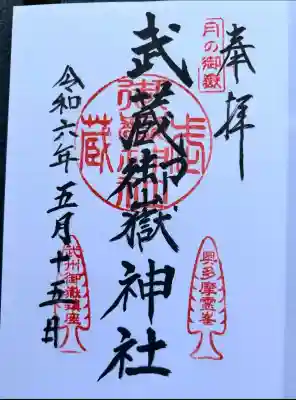 月の御嶽
奉拝
武蔵御嶽神社
武蔵
奥多摩霊峯
武州御嶽鎮座
令和六年五月十五日